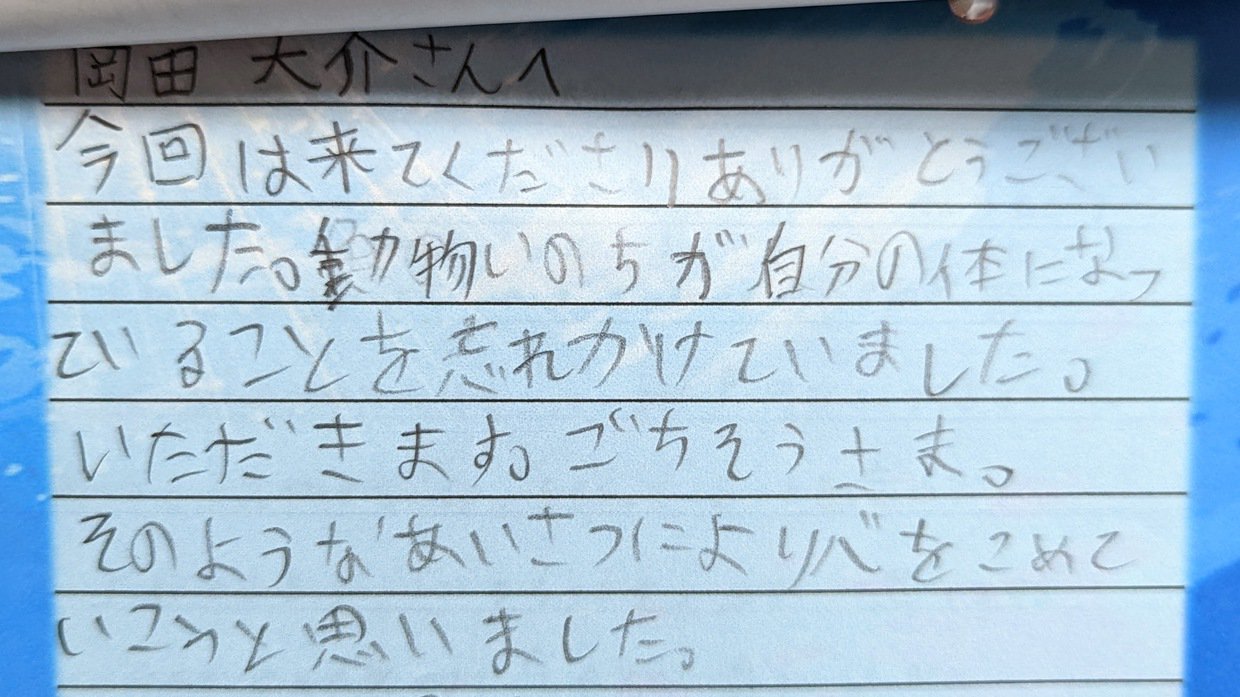 岡田 大介さんへ
今回は来てくださりありがとうござい
ました。動物いのちが自分の体になっ
ていることを忘れかけていました。
いただきます。ごちそうさま。
そのようなあいさつにより心をこめて
いこうと思いました。